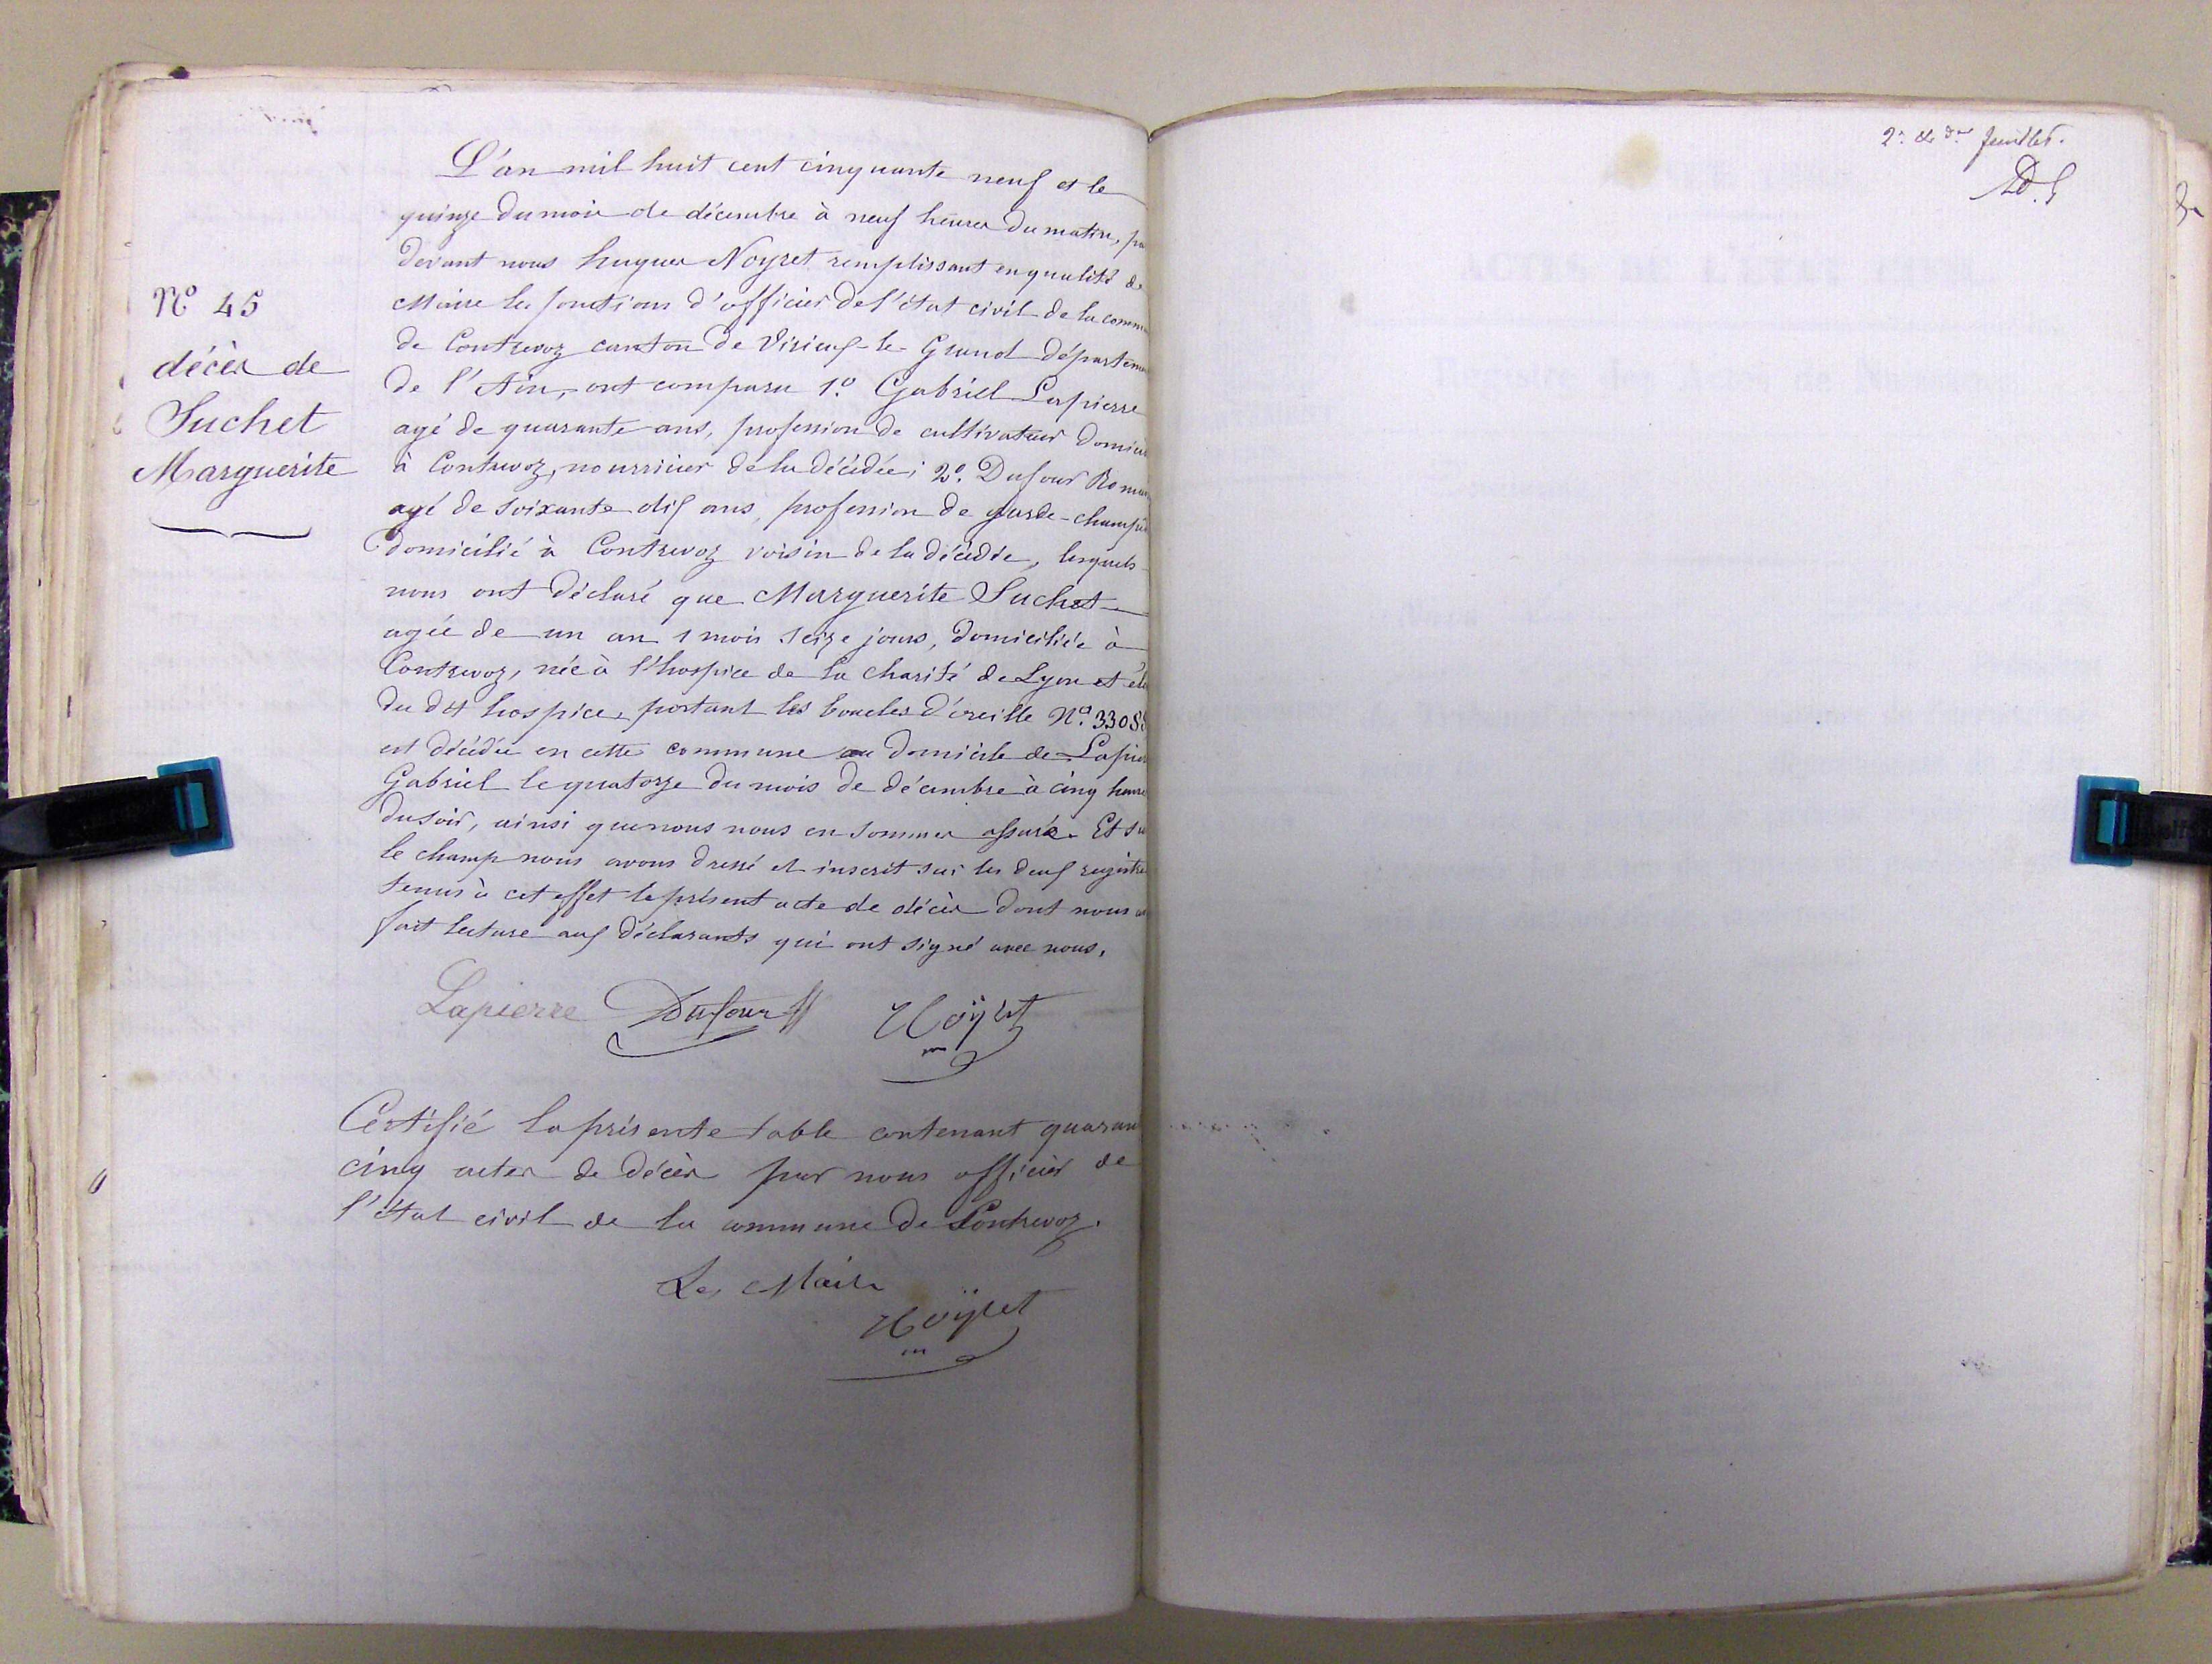 N° 45
décès de
Suchet
Marguerite
L'an mil huit cent cinquante neuf et le
quinze du mois de décembre à neuf heures du matin, pa
devant nous hugues Noyret remplissant en qualité de
Maire les fonctions d'officier de l'état civil de la comm
de Contrevoz canton de Virieux-le-Grand départem
de l'Ain, ont comparu 1° Gabriel Lapierre
agé de quarante ans, profession de cultivateur domici
à Contrevoz, nourricier de la décédée; 2° Dufour Romai
agé de soixante dix ans, profession de garde-champê
domicilié à Contrevoz voisin de la décédée, lesquels
nous ont déclaré que Marguerite Suchet
agée de un an 1 mois seize jours, domiciliée à
Contrevoz, née à l'hospice de la charité de Lyon et élè
du dit hospice, portant les boucles d'oreille N° 3308
est décédée en cette commune au domicile de Lapier
Gabriel le quatorze du mois de décembre à cinq heures
du soir, ainsi que nous nous en sommes assuré. Et su
le champ nous avons dressé et inscrit sur les deux registre
tenus à cet effet le présent acte de décès dont nous a
fait lecture aux déclarants qui ont signé avec nous.
Lapierre Dufour Noÿret
Certifié la présente table contenant quaran
cinq actes de décès par nous officier de
l'état civil de la commune de Contrevoz.
Le Maire
Noÿret
2e et der feuillet.